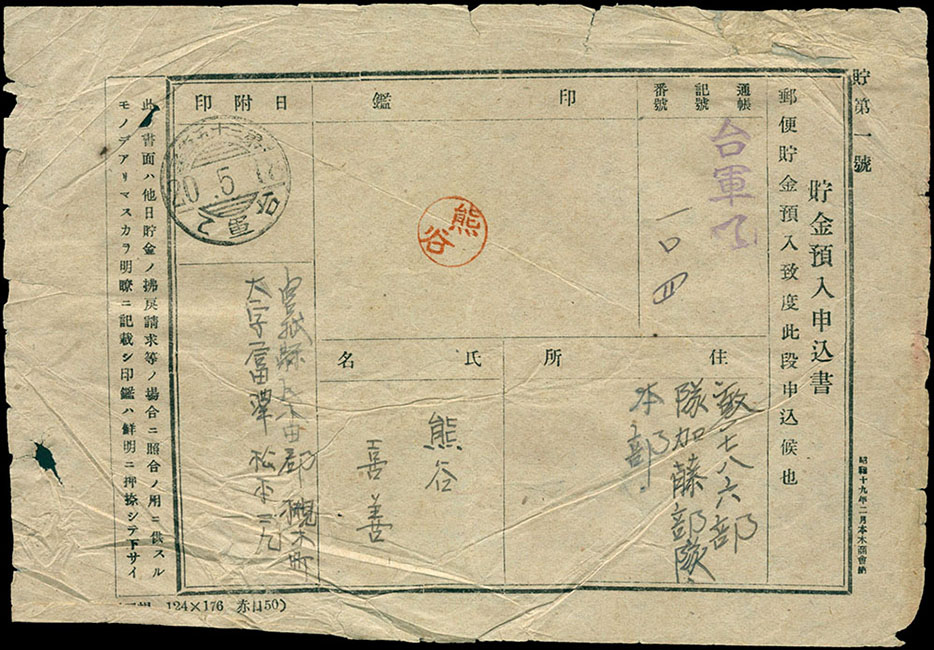 貯第一號
貯金預入申込書
郵便貯金預入致度此段申込候也
昭和十九年二月本木商會納
通帳
記號
番號
台軍
一〇四
印鑑
熊谷
日附印
20.5.
台軍
住所
敢一七八六部
隊加藤部隊
本部
氏名
熊谷
喜善
宮城縣 田郡 槻木町
大字富澤 松本
此ノ書面ハ他日貯金ノ拂戻請求等ノ場合ニ照合ノ用ニ供スル
モノデアリマスカラ明瞭ニ記載シ印鑑ハ鮮明ニ押捺シテ下サイ
124×176